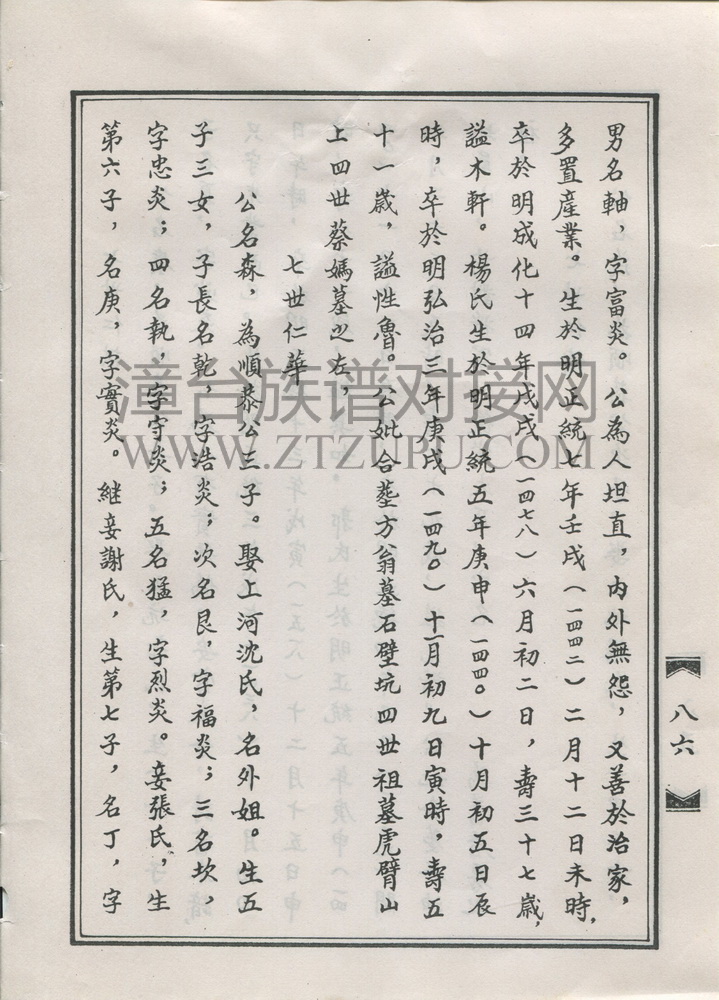 男名軸，字富炎。公為人坦直，內外無怨，又善於治家，
多置產業。生於明正統七年壬戌（一四四二）二月十二日未時，
卒於明成化十四年戊戌（一四七八）六月初二日，壽三十七歲，
諡木軒。楊氏生於明正統五年庚申（一四四〇）十月初五日辰
時，卒於明弘治三年庚戌（一四九〇）十一月初九日寅時，壽五
十一歲，諡性魯。公妣合塟方翁墓石壁坑四世祖墓虎臂山
上四世蔡媽墓之左，
七世仁華
公名森，為順恭公三子。娶上河沈氏，名外姐。生五
子三女，子長名乾，字浩炎；次名艮，字福炎；三名坎，
字忠炎；四名執，字守炎；五名猛，字烈炎。妾張氏，生
第六子，名庚，字實炎。継妾謝氏，生第七子，名丁，字
八六
漳台族谱对接网
WWW.ZTZUPU.COM